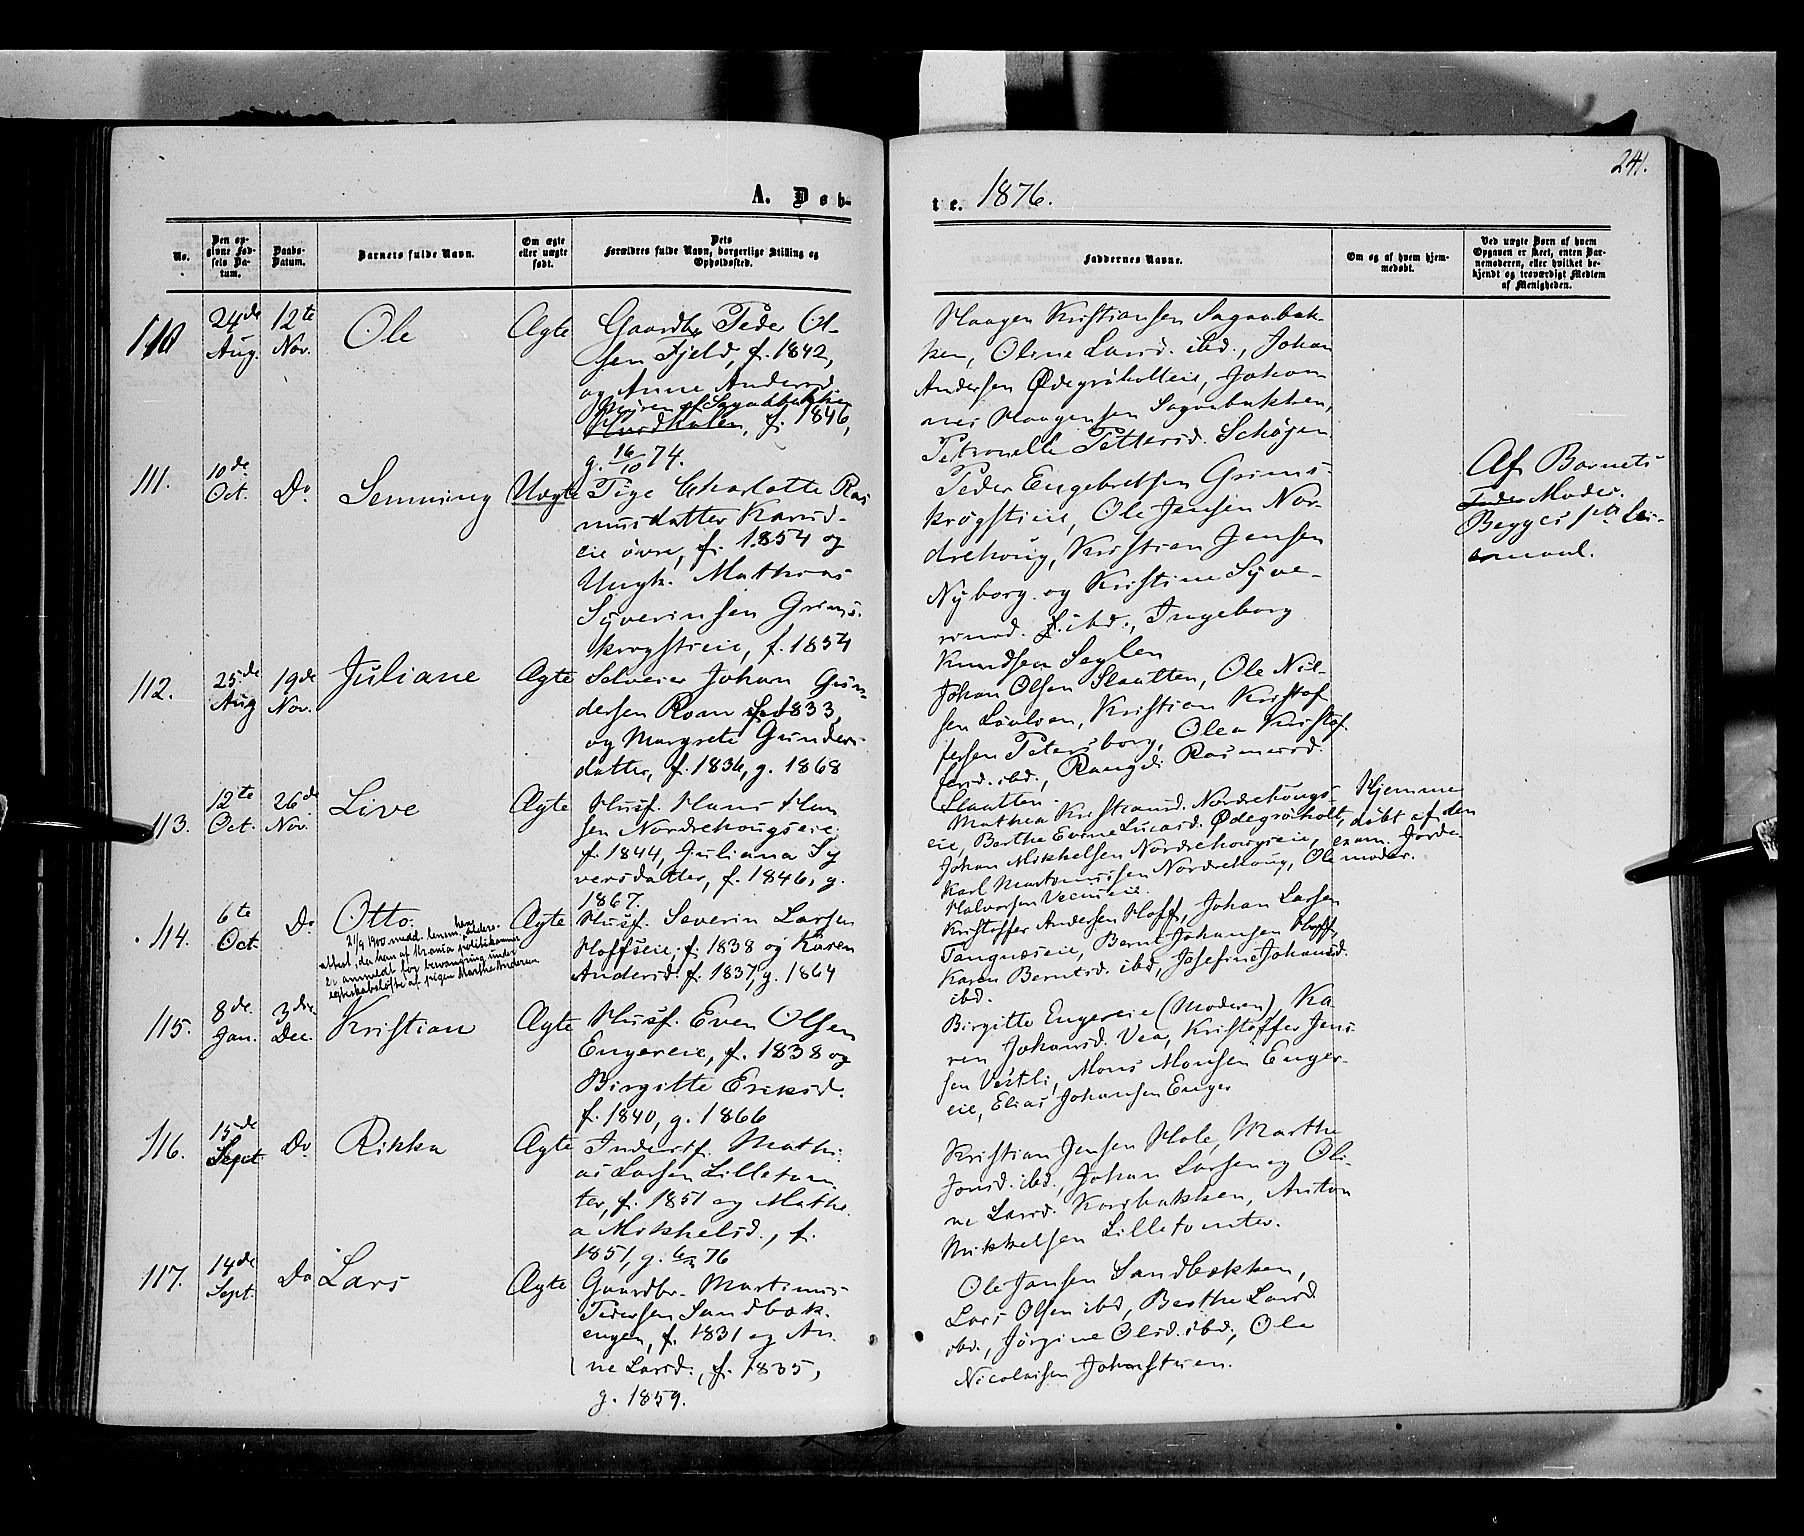 241.
A. Døb-
te. 1876.
No.
Den op-
givne Fød-
sels Da-
tum.
Daabs-
Datum.
Barnets fulde Navn.
Om ægte
eller uægte
født.
Dets
Forældres fulde Navn, borgerlige Stilling og
Opholdssted.
Faddernes Navne.
Om og af hvem hjem-
medøbt.
Ved uægte Børn af hvem
Opgaven er skeet, enten Bar-
nemoderen, eller hvilket be-
kjendt og troværdigt Medlem
af Menigheden.
110
24de
Aug.
12te
Nov.
Ole
Ægte
Gaardbr. Peder Ol-
sen Fjeld, f. 1842,
og Anne Andersd.
f. 1846,
g. 16/10 74.
Haagen Kristiansen Sagaabak-
ken, Oline Larsd. ibd., Johan
Andersen Ødegrøholteie, Johan-
nes Haagensen Sagaabakken,
Petronelle Pettersd. Schøjen
111.
10de
Oct.
Do
Semming
Uægte
Pige Charlotte Ras
musdatter Karud-
eie øvre, f. 1854 og
Ungk. Mathias
Syverinsen Grims-
krogstieie, f. 1854
Peder Engebretsen Grims-
krogstieie, Ole Jensen Nor-
drehoug, Kristian Jensen
Nyborg og Kristine Syve-
rinsd. ibd., Ingeborg
Knudsen Seglen
Af Barnets
Fader Moder.
Begges 1ste Lei-
ermaal.
112.
25de
Aug
19de
Nov.
Juliane
Ægte
Selveier Johan Gun-
dersen Roen f. 1833,
og Margrete Gunders-
datter, f. 1836, g. 1868
Johan Olsen Slaatten, Ole Nil-
sen Kristian Kristof-
fersen Petersborg, Olea Kristof-
fersd. ibd., Rangdi Rasmusd.
Slaatten.
113.
12te
Oct.
26de
Nov.
Live
Ægte
Husf. Hans Han
sen Nordrehougseie,
f. 1844, Juliana Sy
versdatter, f. 1846, g.
1867.
Mathea Kristiansd. Nordrehougs-
eie, Berthe Evine Lucasd. Ødegrøholt,
Johan Mikkelsen Nordrehougseie,
Karl Martinussen Nordrehoug, Ole
Halvorsen
Hjemme
døbt af den
exam. Jorde-
moder.
114.
6te
Oct.
Do
Otto.
Ægte
Husf. Severin Larsen
Hoffseie, f. 1838 og Karen
Andersd. f. 1837, g. 1864
Kristoffer Andersen Hoff, Johan Larsen
Tangneseie, Bernt Johansen Hoff,
Karen Berntsd. ibd, Josefine Johansd.
ibd.
115.
8de
Jan.
3die
Dec.
Kristian
Ægte
Husf. Even Olsen
Engereie, f. 1838 og
Birgitte Eriksd.
f. 1840, g. 1866
Birgitte Engereie (Moderen), Ka
ren Johansd. Vea, Kristoffer Jens
sen Vestli, Mons Monsen Enger-
eie, Elias Johansen Enger
116.
15de
Sept
Do
Rikka
Ægte
Inderstf. Mathi-
as Larsen Lilletom
ter, f. 1851 og Mathe
a Mikkelsd., f.
1851, g. 76
Kristian Jensen Hole, Marthe
Jonsd. ibd., Johan Larsen og Oli-
ne Larsd. Korsbakken, Anton
Mikkelsen Lilletomter.
117.
14de
Sept.
Do
Lars
Ægte
Gaardbr. Martinus
Pedersen Sandbæk-
engen, f. 1831 og An-
ne Larsd., f. 1835,
g. 1859.
Ole Jansen Sandbækken,
Lars Olsen ibd, Berthe Larsd
ibd., Jørgine Olsd. ibd., Ole
Nicolaisen Johnstuen.